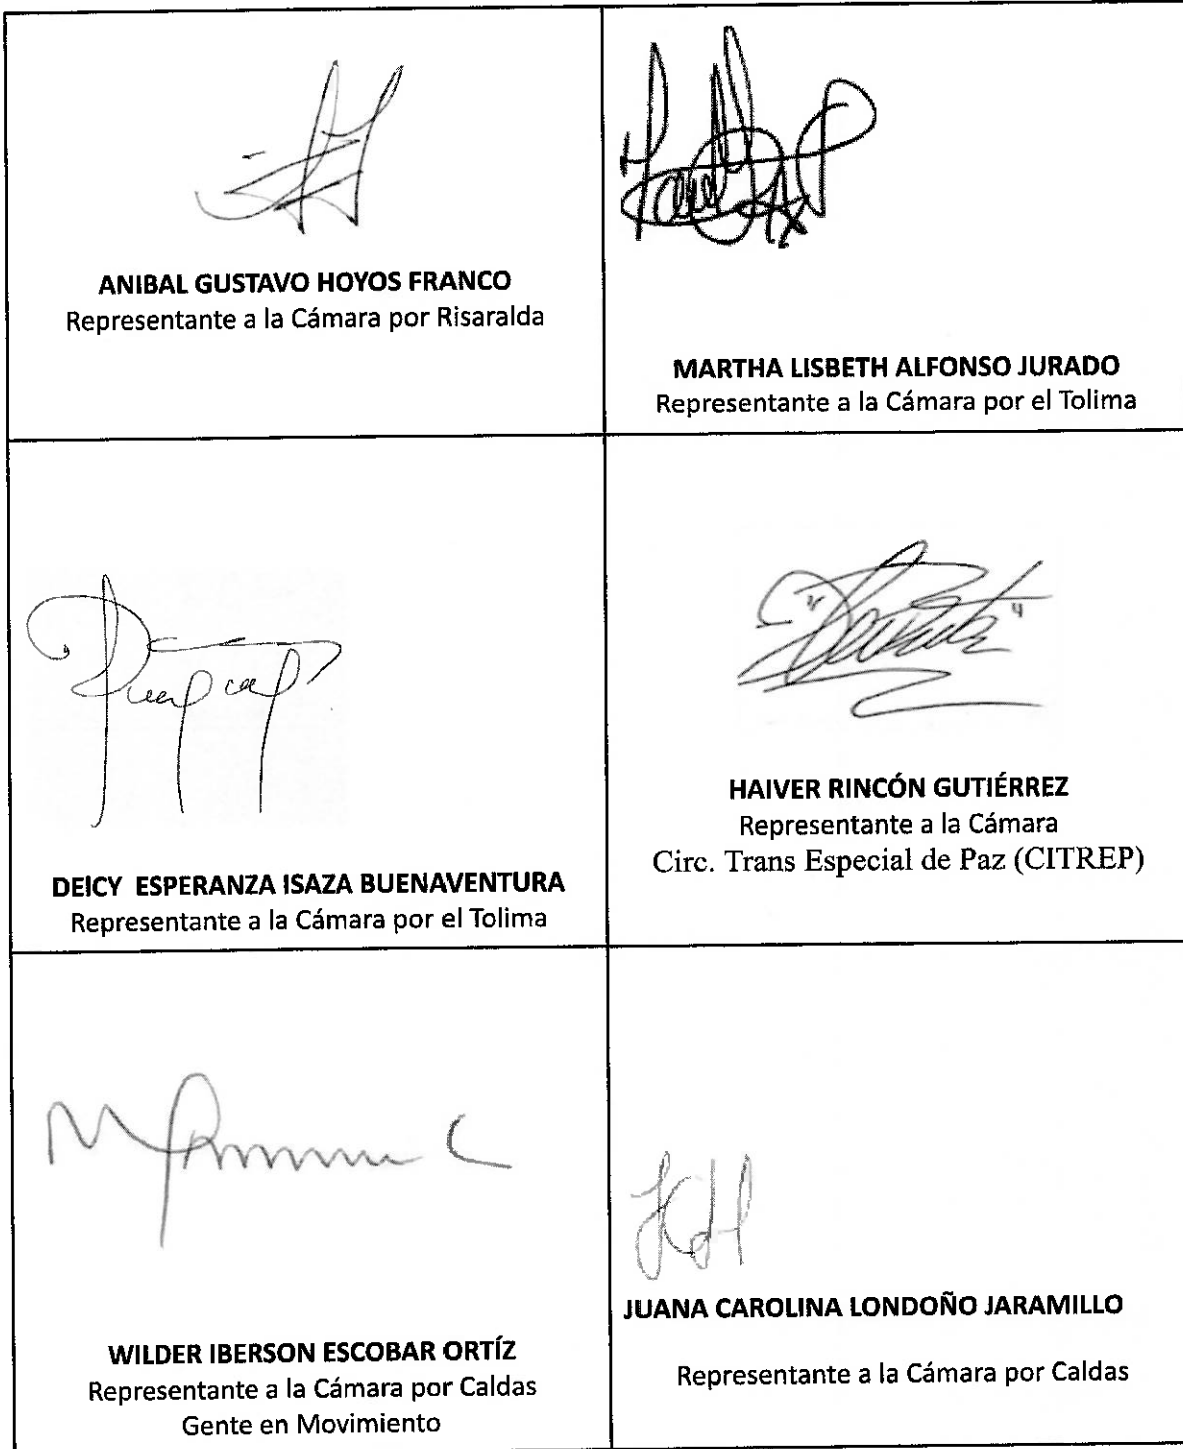 ANIBAL GUSTAVO HOYOS FRANCO
Representante a la Cámara por Risaralda
MARTHA LISBETH ALFONSO JURADO
Representante a la Cámara por el Tolima
DEICY ESPERANZA ISAZA BUENAVENTURA
Representante a la Cámara por el Tolima
HAIVER RINCÓN GUTIÉRREZ
Representante a la Cámara
Circ. Trans Especial de Paz (CITREP)
WILDER IBERSON ESCOBAR ORTÍZ
Representante a la Cámara por Caldas
Gente en Movimiento
JUANA CAROLINA LONDOÑO JARAMILLO
Representante a la Cámara por Caldas